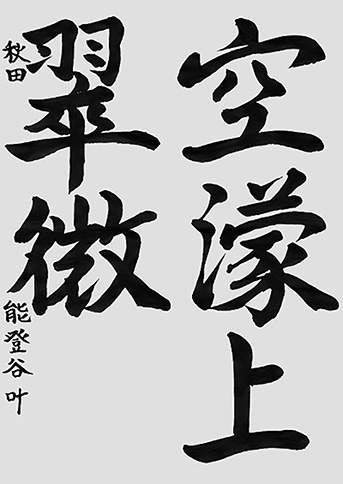 空濛上
翠微
秋田
能登谷叶